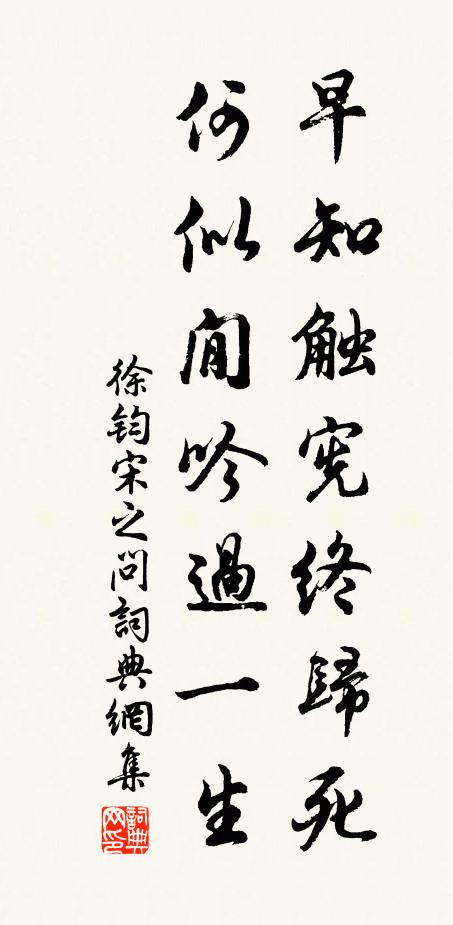 早知触宪终歸死
何似閒吟過一生
徐钧宋之问詞典網集
詞典网印